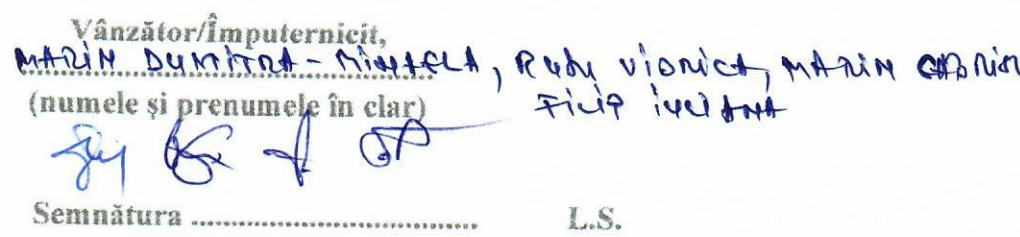 Vânzător/Împuternicit,
MARIN DUMITRA - MIHAELA, RUDU VIORICA, MARIN GABRIEL
(numele și prenumele în clar) FILIP IULIANA
Semnătura .................................. L.S.